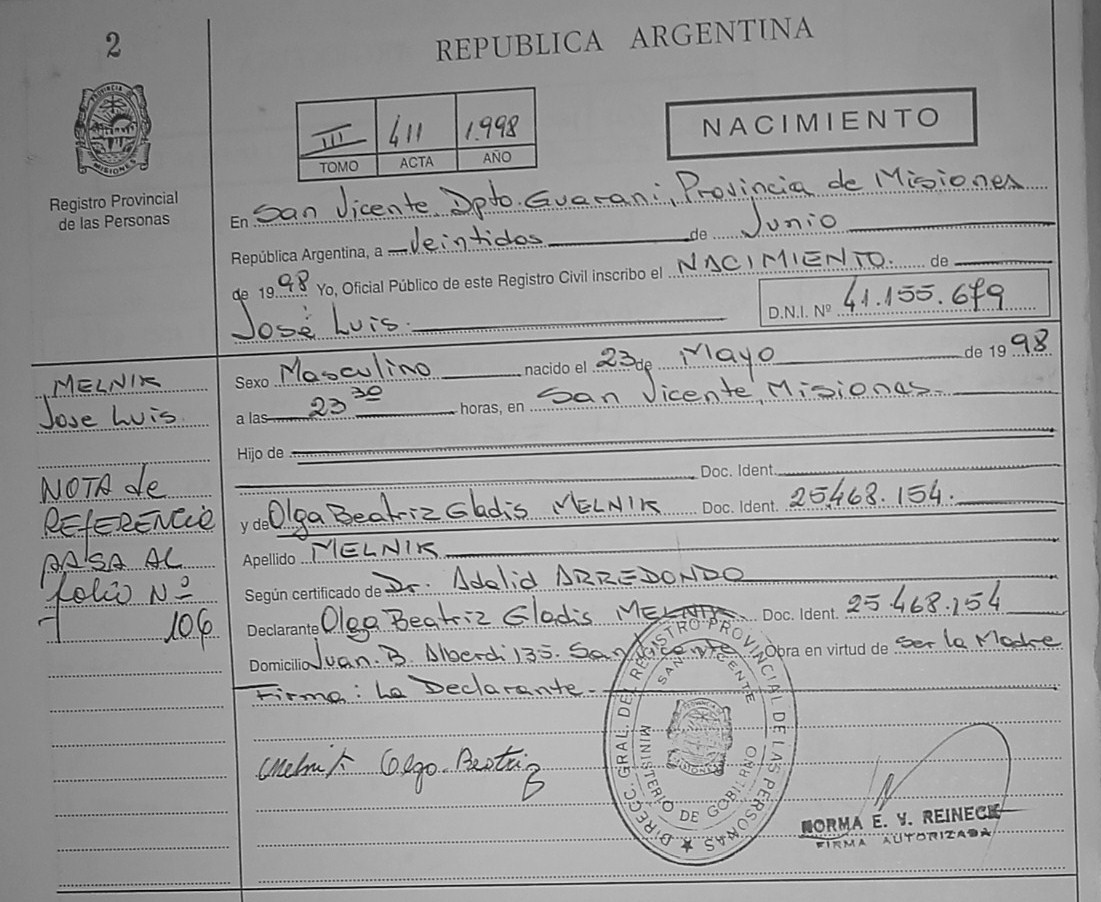 2
REPUBLICA ARGENTINA
PROVINCIA DE
MISIONES
Registro Provincial
de las Personas
III 411 1.998
TOMO ACTA AÑO
NACIMIENTO
En San Vicente, Dpto. Guarani, Provincia de Misiones
República Argentina, a Veintidos de Junio
de 1998 Yo, Oficial Público de este Registro Civil inscribo el NACIMIENTO. de
José Luis. D.N.I. Nº 41.155.679
MELNIK
Jose Luis
NOTA de
REFERENCIA
PASA AL
folio Nº
106
Sexo Masculino nacido el 23 de Mayo de 1998
a las 23 30 horas, en San Vicente, Misiones.
Hijo de
Doc. Ident.
y de Olga Beatriz Gladis MELNIK Doc. Ident. 25.468.154.
Apellido MELNIK
Según certificado de Dr. Adalid ARREDONDO
Declarante Olga Beatriz Gladis MELNIK Doc. Ident. 25.468.154
Domicilio Juan. B. Alberdi 135. San Vicente Obra en virtud de ser la Madre
Firma: La Declarante.-
Melnik Olga Beatriz
DIRECC. GRAL. DEL REGISTRO PROVINCIAL DE LAS PERSONAS
SAN VICENTE
MINISTERIO DE GOBIERNO
MISIONES
NORMA E. V. REINECK
FIRMA AUTORIZADA